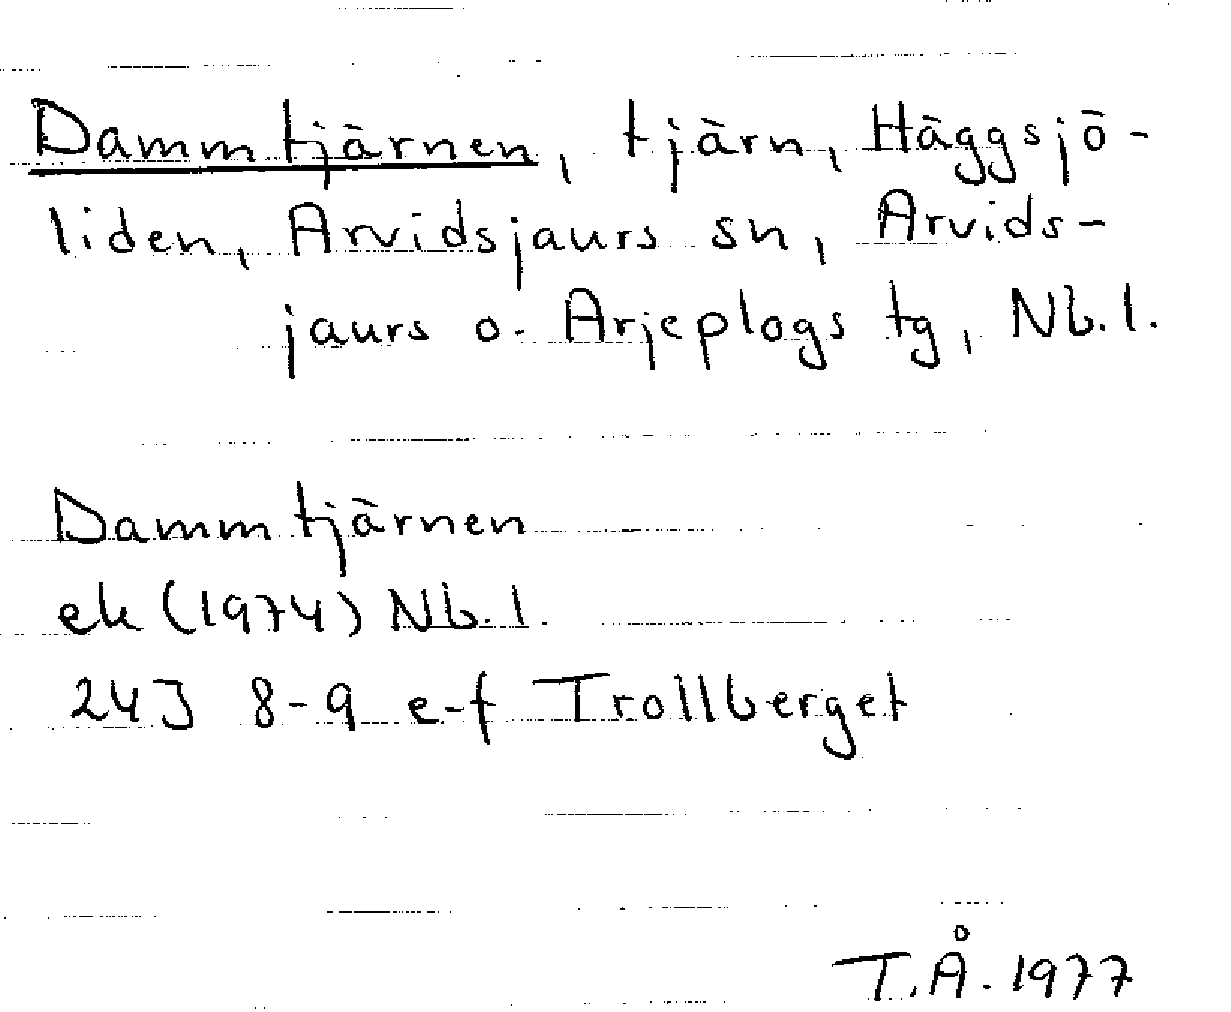 Dammtjärnen, tjärn, Häggsjö-
liden, Arvidsjaurs sn, Arvids-
jaurs o. Arjeplogs tg, Nb.l.
Dammtjärnen
ek (1974) Nb.l.
24J 8-9 e-f Trollberget
T.Å. 1977